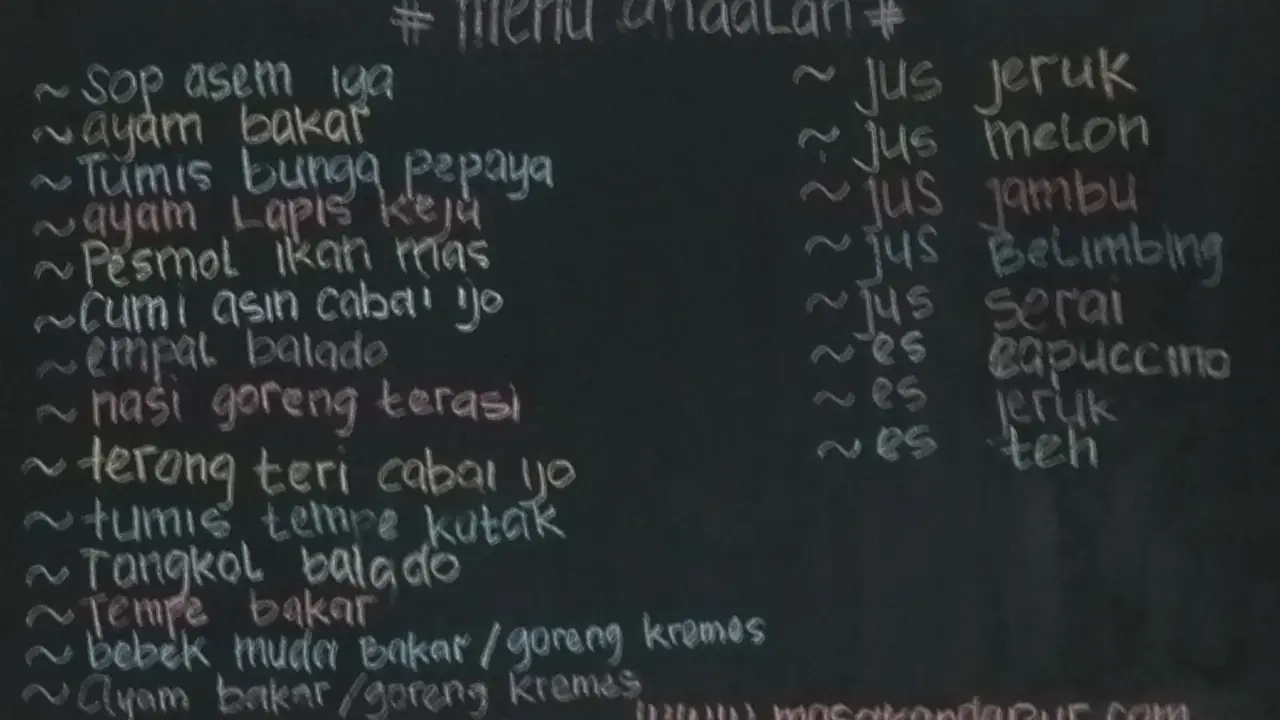 # menu andalan #
~ sop asem iga
~ ayam bakar
~ Tumis bunga pepaya
~ ayam Lapis keju
~ Pesmol ikan mas
~ cumi asin cabai ijo
~ empal balado
~ nasi goreng terasi
~ terong teri cabai ijo
~ tumis tempe kutak
~ Tongkol balado
~ Tempe bakar
~ bebek muda Bakar/goreng kremes
~ Ayam bakar/goreng kremes
~ jus jeruk
~ jus melon
~ jus jambu
~ jus BeLimbing
~ jus serai
~ es capuccino
~ es jeruk
~ es teh
www.masakandapur.com